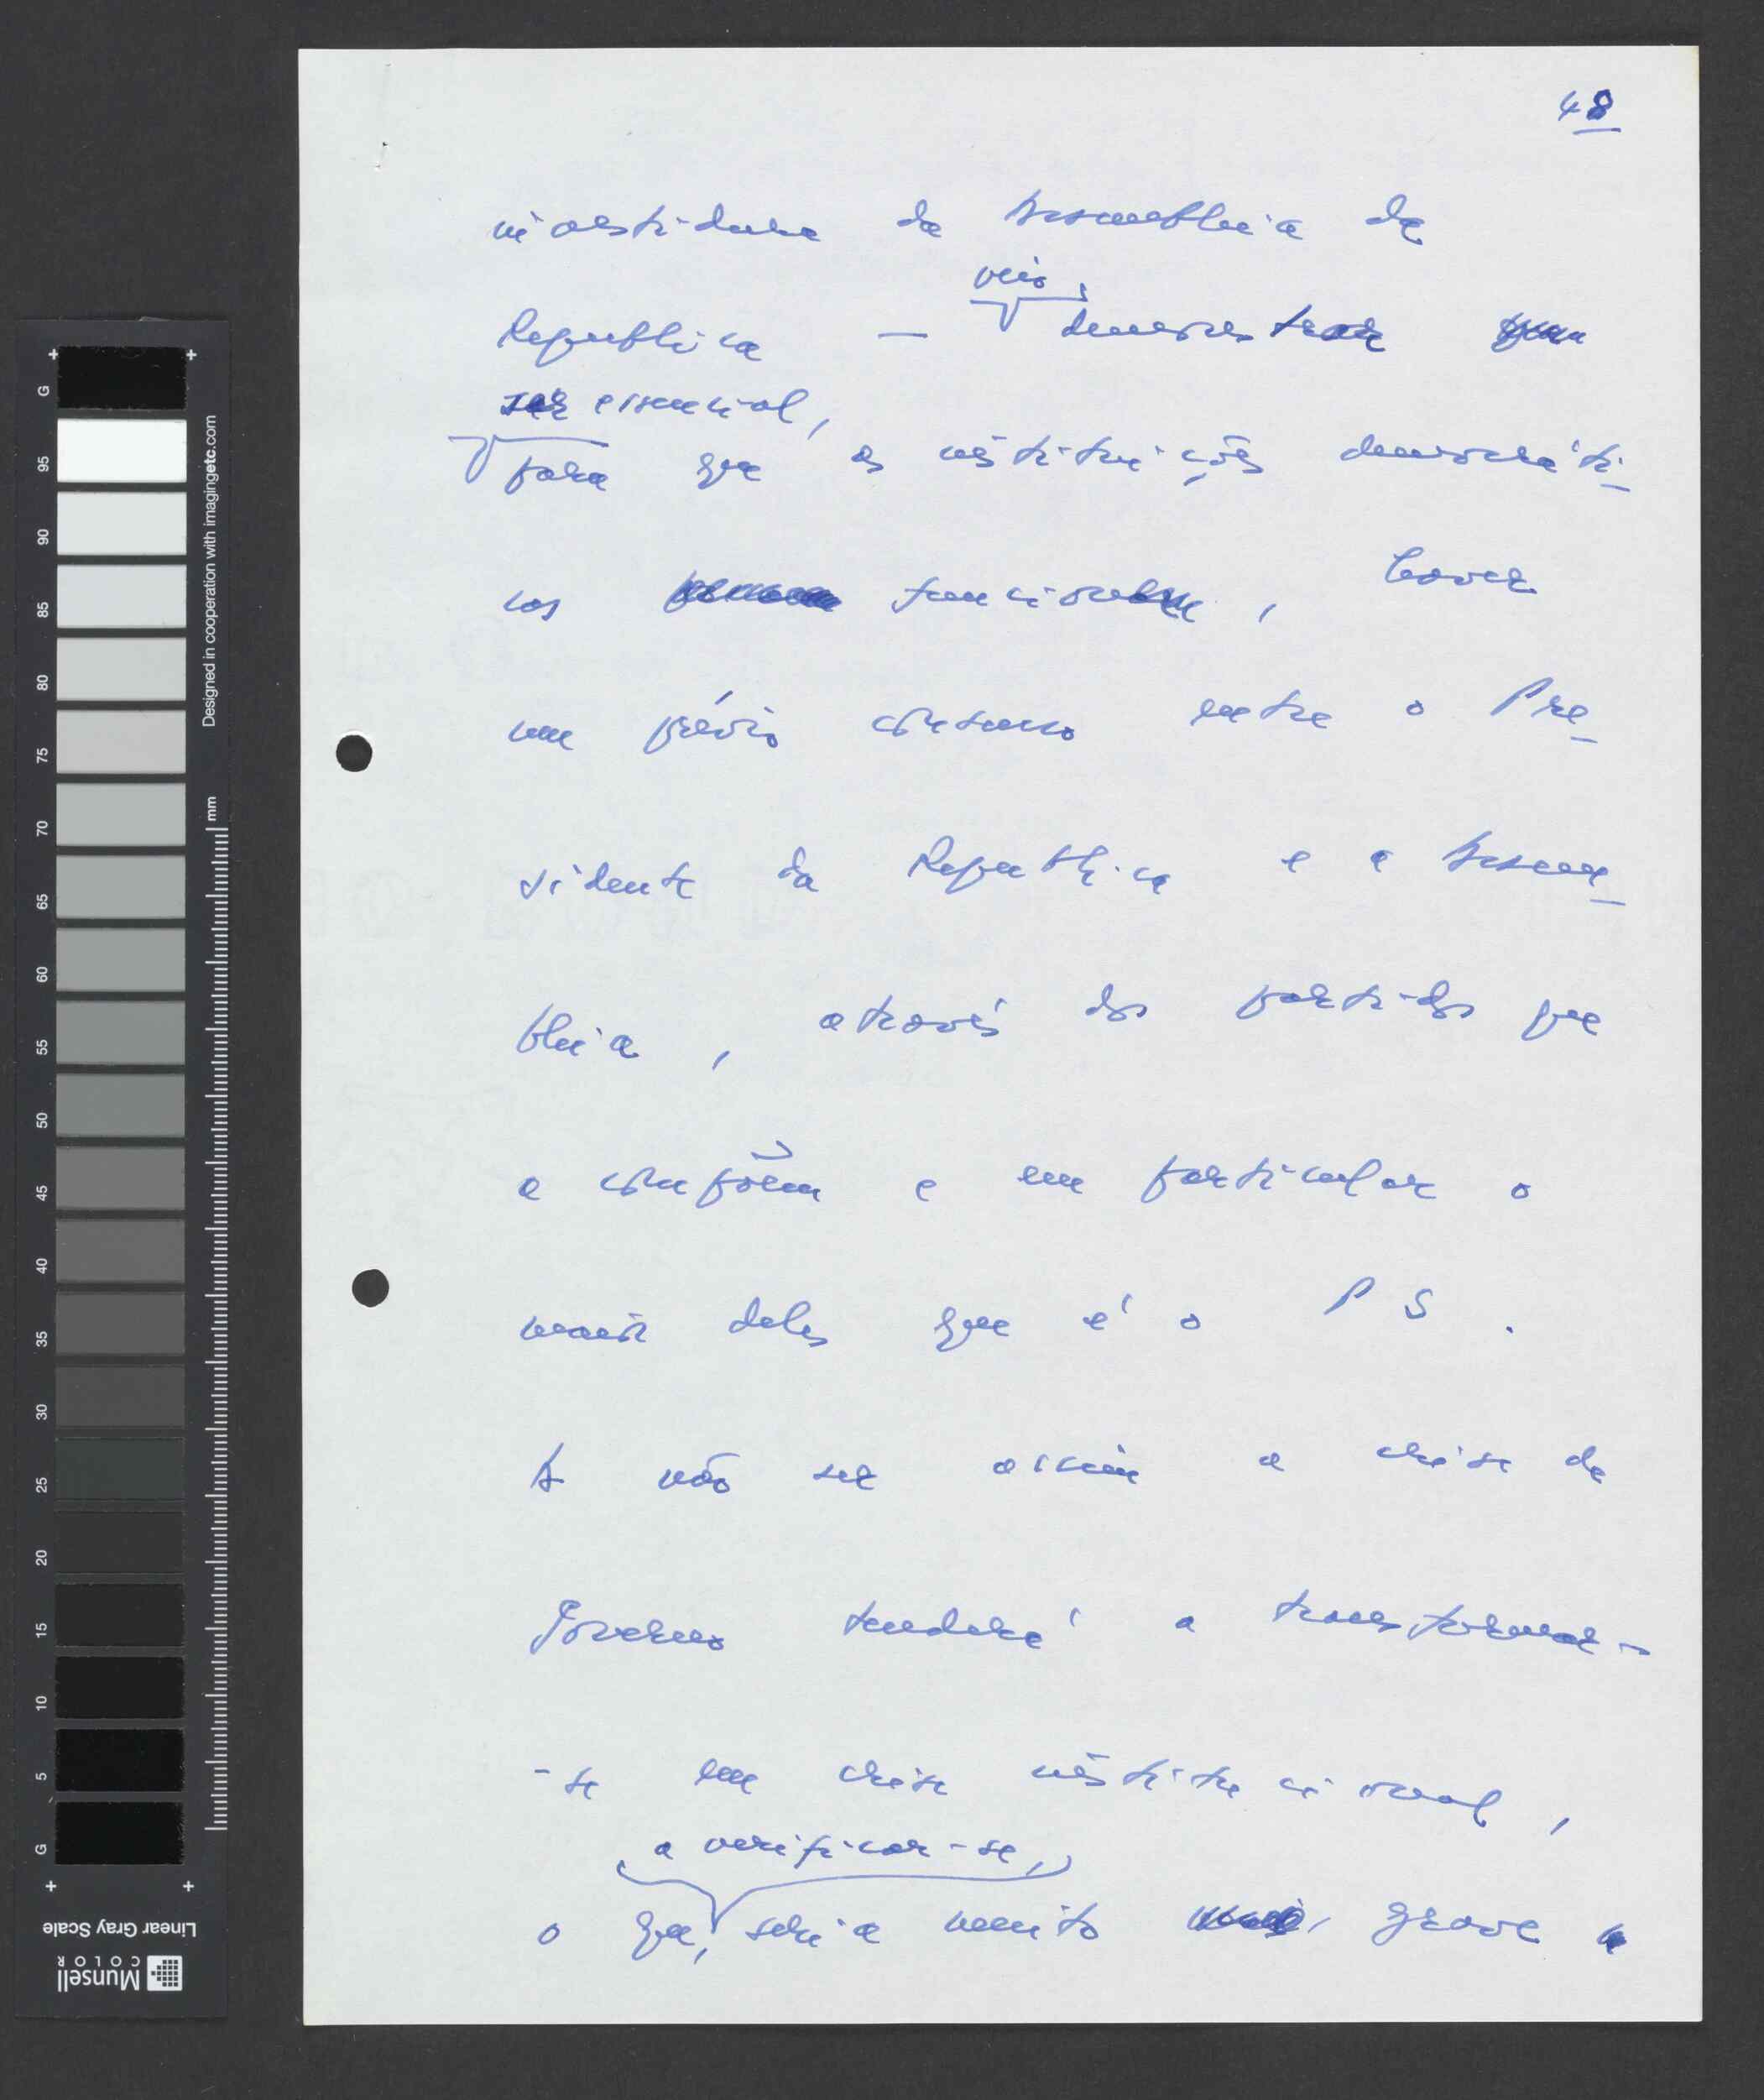 48
investidura da Assembleia da
veio,
Republica — demonstrar
ser essencial,
para que as instituições democráti-
cas funcionem, haver
um prévio consenso entre o Pre-
sidente da Republica e a Assem-
bleia, através dos partidos que
a compõem e em particular o
maior deles que é o PS.
A não ser assim a crise de
Governo tenderá a transformar-
-se em crise institucional,
a verificar-se,
o que, seria muito grave
G
95
90
85
80
75
70
65
60
55
50
45
40
35
30
25
20
15
10
5
G
Designed in cooperation with imagingetc.com
mm
Linear Gray Scale
Munsell
COLOR